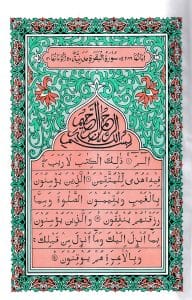 سُوْرَةُ الْبَقَرَةِ مَدَنِيَّةٌ
بِسْمِ اللّٰهِ الرَّحْمٰنِ الرَّحِيْمِ
الٓمّٓ ذٰلِكَ الْكِتٰبُ لَا رَيْبَ
فِيْهِ هُدًى لِّلْمُتَّقِيْنَ الَّذِيْنَ يُؤْمِنُوْنَ
بِالْغَيْبِ وَيُقِيْمُوْنَ الصَّلٰوةَ وَمِمَّا
رَزَقْنٰهُمْ يُنْفِقُوْنَ وَالَّذِيْنَ يُؤْمِنُوْنَ
بِمَآ اُنْزِلَ اِلَيْكَ وَمَآ اُنْزِلَ مِنْ قَبْلِكَ
وَبِالْاٰخِرَةِ هُمْ يُوْقِنُوْنَ